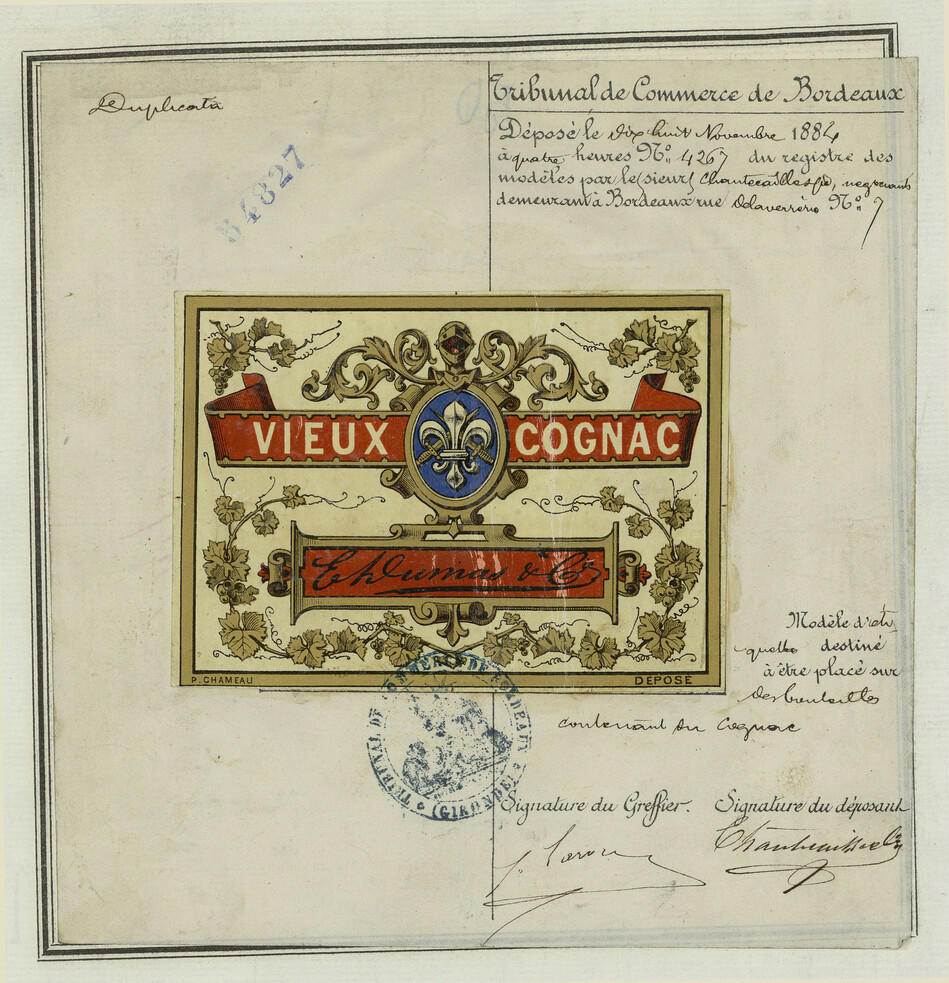 Duplicata
B4827
Tribunal de Commerce de Bordeaux
Déposé le dix huit Novembre 1884
à quatre heures No. 4267 du registre des
modèles par le(sieur) Chantecaille & Cie, negociants
demeurant à Bordeaux rue No. 7
VIEUX COGNAC
E. Dumas & Cie
P. CHAMEAU
DEPOSÉ
Modèle d'éti-
quette destiné
à être placé sur
des bouteilles
contenant du Cognac
TRIBUNAL DE COMMERCE DE BORDEAUX
(GIRONDE)
Signature du Greffier.
Signature du déposant